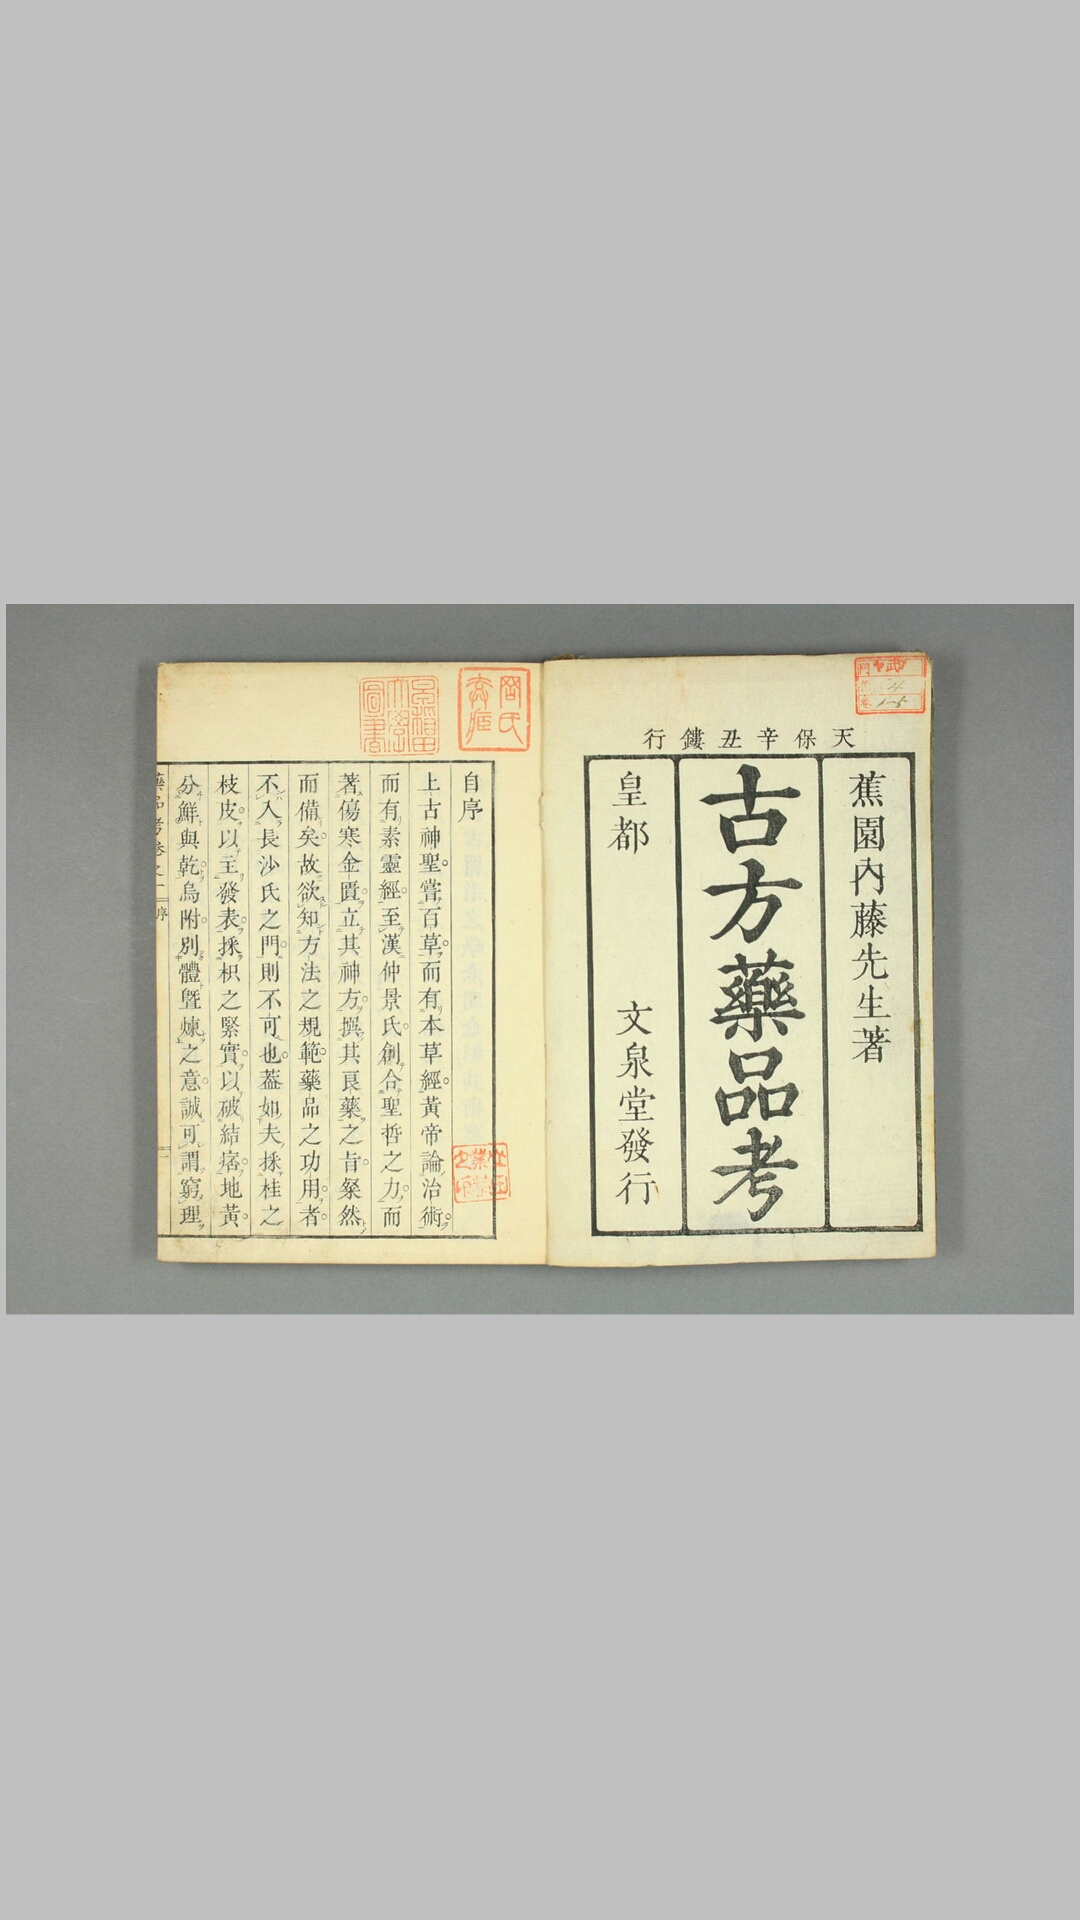 天保辛丑鏤行
蕉園內藤先生著
古方藥品考
皇都 文泉堂發行
自序
上古神聖嘗百草而有本草經黃帝論治術
而有素靈經至漢仲景氏創合聖哲之力而
著傷寒金匱立其神方撰其良藥之旨粲然
而備矣故欲知方法之規範藥品之功用者
不入長沙氏之門則不可也蓋如夫採桂之
枝皮以主發表採枳之緊實以破結痞地黃
分鮮與乾烏附別體曁煉之意誠可謂窮理
藥品考卷之一 序
早稲田大學圖書